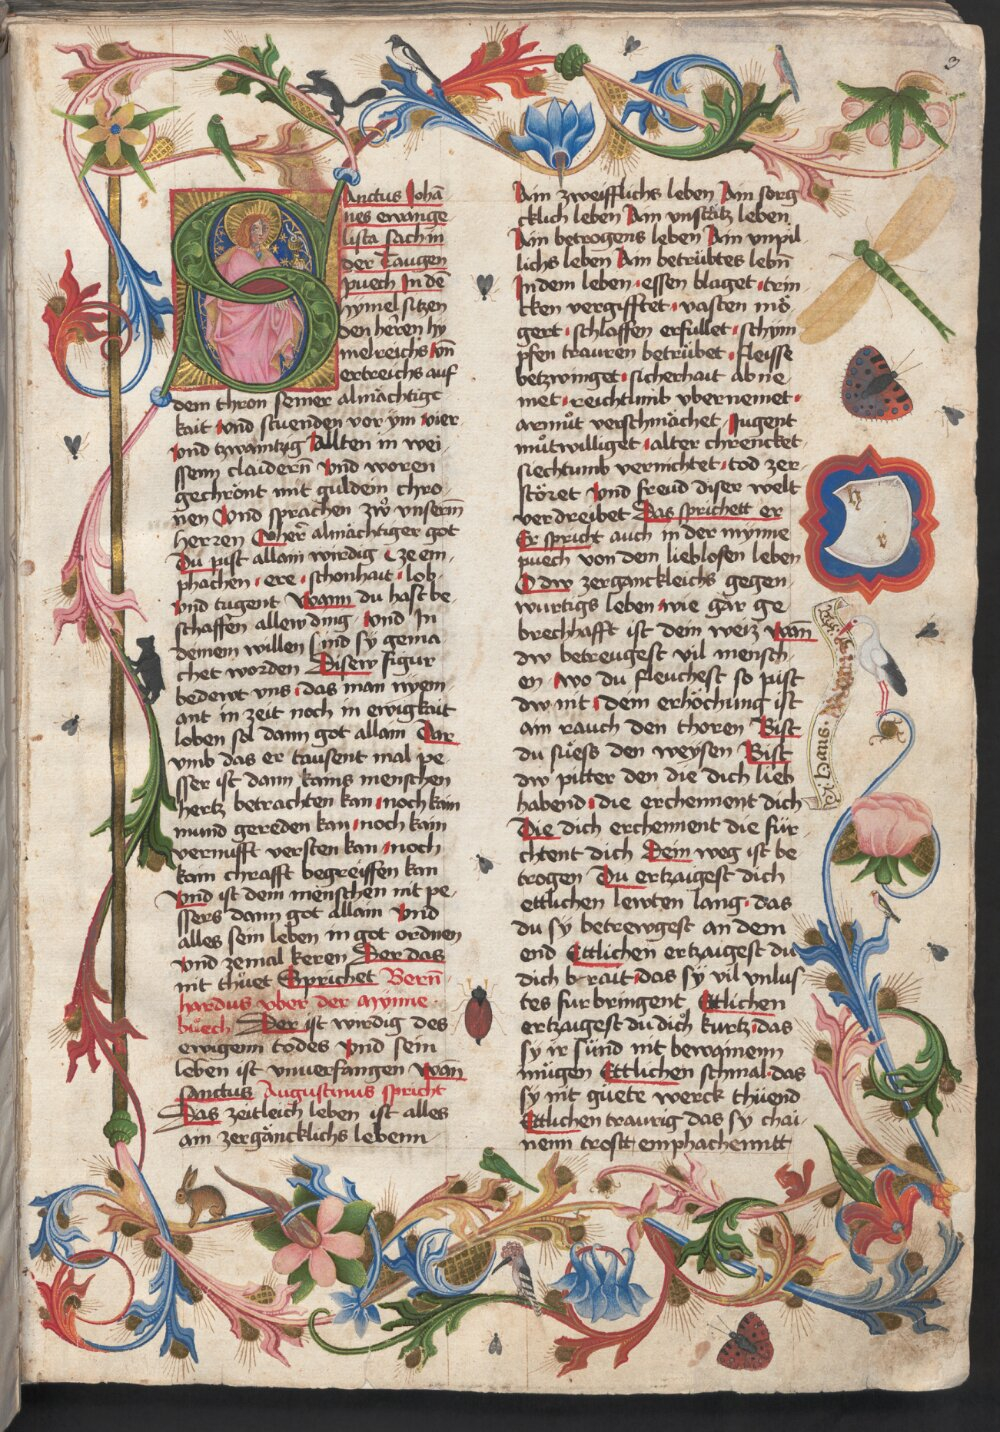 3
Sanctus Johā
nes ewange
lista sach in
der Taugen
puech In dē
hymel sitzen
den herren hy
melreichs vn̄
ertreichs auf
dem thron seiner almächtige
kait vnd stuenden vor ym vier
vnd tzwaintzig Allten in wei
ssenn claidern̄ vnd woren
gechrönt mit guldein chro
nen Vnd sprachen zẘ vnserm̄
herzen O herr̄ almächtiger got
Du pist allain wirdig ze em
phachen · ere · schonhait · lob ·
vnd tugent Wann du hast be
schaffen allew ding · vnd In
deinem willen sind sy gema
chet worden Disew figur
bedewt vns · das man nyem
ant in zeit noch in ewigkait
loben sol dann got allain Dar
vmb das er tausent mal pe
sser ist dann kains menschen
hertz betrachten kan · noch kain
mund gereden kan · noch kain
vernufft versten kan · noch
kain chrafft begreiffen kan
vnd ist dem menschen nit pe
ssers dann got allain Vnd
alles sein leben in got ordnen
vnd zemal keren Der das
nit thuet Sprichet Bern̄
hardus vber der mynne
buech Der ist wirdig des
ewigenn todes vnd sein
leben ist vnuerfangen Wan̄
Sanctus Augustinus spricht
Das zeitleich leben ist alles
ain zergäncklichs lebenn
Ain zweifflichs leben Ain sorg
cklich leben Ain vnstätz leben
Ain betrogens leben Ain vnpil
lichs leben Ain betrübtes lebn̄
In dem leben · essen blaget · trin
cken vergifftet · vasten mö
gert · schlaffen erfullet · schym
pfen trauren betrübet · fleisse
betzwinget · sicherhait abne
met · reichtumb vbernemet ·
armůt verschmächet · Jugent
můtwilliget · alter chrencket
siechtumb vernichtet · tod zer
störet vnd freud diser welt
verdreibet Das sprichett er
Er spricht auch in der mynne
puech von dem lieblosen leben
O dw zerganckleichs gegen
wurtigs leben wie gar ge
brechhafft ist dein weiz wan̄
dw betreugest vil mensch
en · wo du fleuchest so pist
dw nit · dein erhöchung ist
ain rauch den thoren Bist
du suess den weysen Bist
dw pitter den die dich lieb
habend · die erchennent dich
Die dich erchennent die für
chtent dich Dein weg ist be
trogen Du ertzaigest dich
ettlichen lewten lang · das
du sy betrewgest an dem
end Ettlichen ertzaigest du
dich brait · das sy vil vnlus
tes furbringent Ettlichen
ertzaigest du dich kurtz · das
sy ir sünd nit bewainenn
mügen Ettlichen schmal · das
sy nit guete werck thüend
Ettlichen traurig das sy chai
nenn trostt emphachenntt